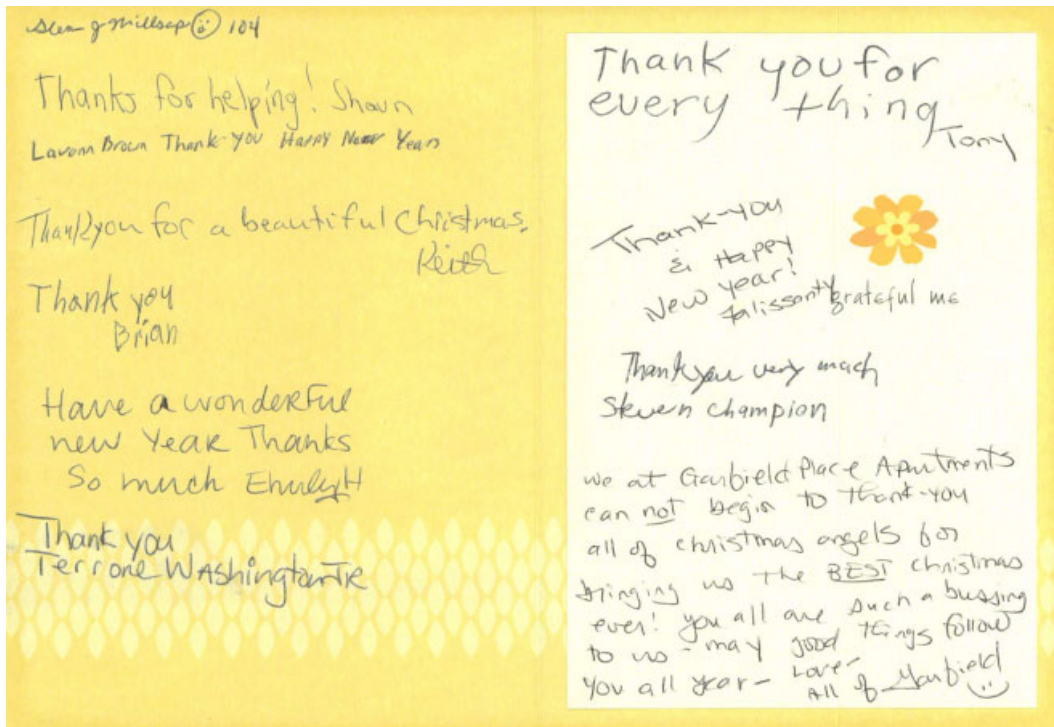 J Millsap 104
Thanks for helping! Shaun
Lavonn Brown Thank-you Happy New Years
Thankyou for a beautiful Christmas.
Keith
Thank you
Brian
Have a wonderful
new Year Thanks
So much
Thank you
Terrone Washington JR
Thank you for
every thing
Tony
Thank-you
& Happy
New year!
grateful me
Thank you very much
Steven Champion
we at Garfield Place Apartments
can not begin to thank-you
all of christmas angels for
bringing us the BEST christmas
ever! you all are such a blessing
to us - may good things follow
you all year- Love-
All of Garfield